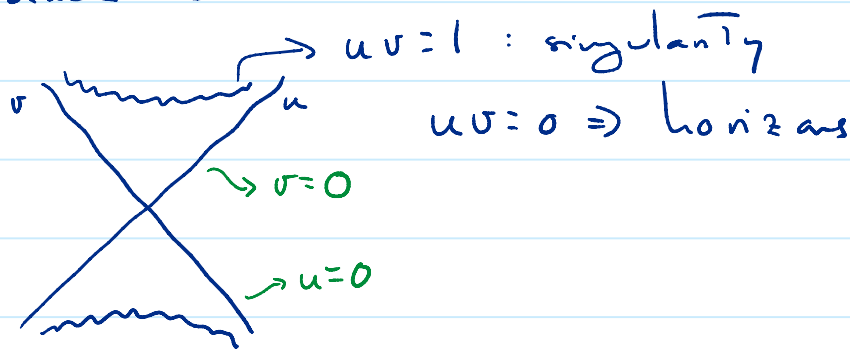 uv=1 : singularity
v
u
uv=0 => horizons
v=0
u=0